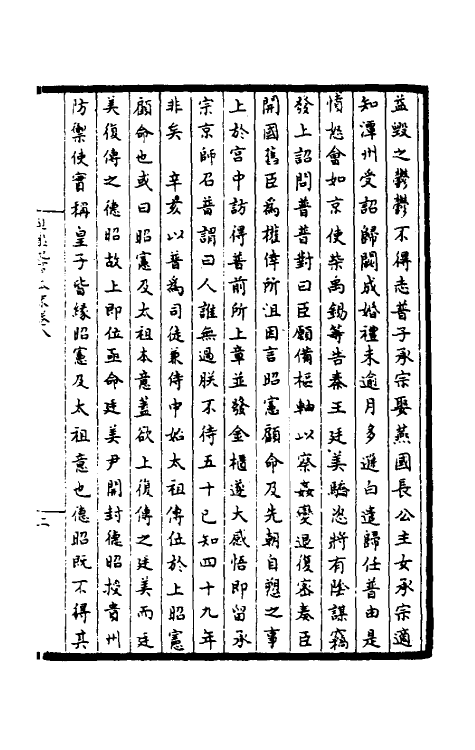 益毀之鬱鬱不得志普子承宗娶燕國長公主女承宗適
知潭州受詔歸闕成婚禮未逾月多遜白遣歸任普由是
憤怒會如京使柴禹錫等告秦王廷美驕恣將有陰謀竊
發上詔問普普對曰臣願備樞軸以察姦變退復密奏臣
開國舊臣爲權倖所沮因言昭憲顧命及先朝自愬之事
上於宮中訪得普前所上章並發金櫃遂大感悟即留承
宗京師召普謂曰人誰無過朕不待五十已知四十九年
非矣　辛亥以普爲司徒兼侍中始太祖傳位於上昭憲
顧命也或曰昭憲及太祖本意蓋欲上復傳之廷美而廷
美復傳之德昭故上即位亟命廷美尹開封德昭授貴州
防禦使實稱皇子皆緣昭憲及太祖意也德昭既不得其